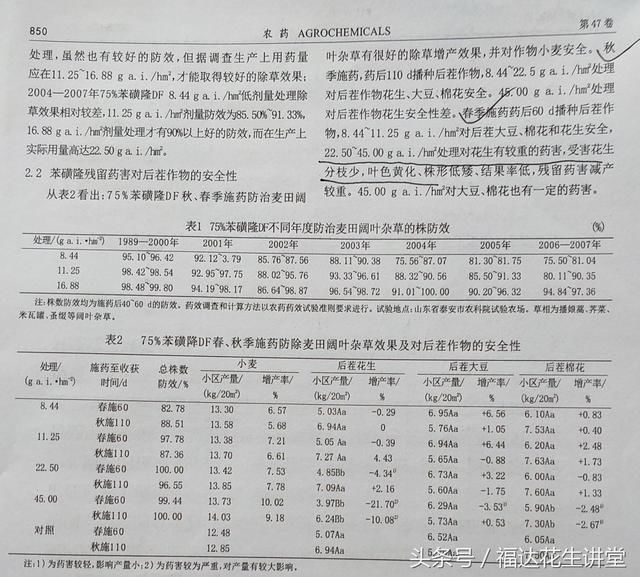 850
农 药 AGROCHEMICALS
第 47 卷
处理,虽然也有较好的防效,但据调查生产上用药量
应在11.25~16.88 g a.i./hm²,才能取得较好的除草效果;
2004—2007年75%苯磺隆DF 8.44 g a.i./hm²低剂量处理除
草效果相对较差,11.25 g a.i./hm²剂量防效为85.50%~91.33%,
16.88 g a.i./hm²剂量处理才有90%以上好的防效,而在生产上
实际用量高达22.50 g a.i./hm²。
2.2 苯磺隆残留药害对后茬作物的安全性
从表2看出:75%苯磺隆DF秋、春季施药防治麦田阔
叶杂草有很好的除草增产效果,并对作物小麦安全。秋
季施药,药后110 d播种后茬作物,8.44~22.5 g a.i./hm²处理
对后茬作物花生、大豆、棉花安全。45.00 g a.i./hm²处理
对后茬作物花生安全性差。春季施药药后60 d播后茬作
物,8.44~11.25 g a.i./hm²对后茬大豆、棉花和花生安全,
22.50~45.00 g a.i./hm²处理对花生有较重的药害,受害花生
分枝少,叶色黄化、株形低矮、结果率低,残留药害减产
较重。45.00 g a.i./hm²对大豆、棉花也有一定的药害。
表1 75%苯磺隆DF不同年度防治麦田阔叶杂草的株防效 (%)
处理/(g a.i.·hm⁻²) 1989—2000年 2001年 2002年 2003年 2004年 2005年 2006—2007年
8.44 95.10~96.42 92.12~3.79 85.76~87.56 88.11~90.38 75.56~87.07 81.30~81.75 75.50~81.04
11.25 98.42~98.54 92.95~97.75 88.02~95.76 93.33~96.61 88.32~90.56 85.50~91.33 80.11~90.35
16.88 98.48~99.80 94.19~98.17 86.64~98.87 96.54~98.72 91.01~100.00 90.20~96.32 94.84~97.36
注:株数防效均为施药后40~60 d的防效。药效调查和计算方法以农药药效试验准则要求进行。试验地点:山东省泰安市农科院试验农场。草相为播娘蒿、荠菜、
米瓦罐、圣缀等阔叶杂草。
表2 75%苯磺隆DF春、秋季施药防除麦田阔叶杂草效果及对后茬作物的安全性
处理/ 施药至收获 总株数 小麦 后茬花生 后茬大豆 后茬棉花
(g a.i.·hm⁻²) 时间/d 防效/% 小区产量/ 增产率/ 小区产量/ 增产率/ 小区产量/ 增产率/ 小区产量/ 增产率/
(kg/20m²) % (kg/20m²) % (kg/20m²) % (kg/20m²) %
8.44 春施60 82.78 13.30 6.57 5.03Aa -0.29 6.95Aa +6.56 6.10Aa +0.83
秋施110 88.51 13.58 5.68 6.94Aa 0 5.76Aa +1.05 7.53Aa +0.40
11.25 春施60 97.78 13.38 7.21 5.05Aa -0.39 6.94Aa +6.44 6.20Aa +2.48
秋施110 87.36 13.70 6.61 7.27 Aa 4.43 5.65Aa -0.88 7.63Aa +1.73
22.50 春施60 100.00 13.42 7.53 4.85Bb -4.34¹⁾ 6.73Aa +3.22 6.00Aa -0.83
秋施110 96.55 13.85 7.78 7.09Aa +2.16 5.60Aa -1.75 7.60Aa +1.33
45.00 春施60 99.44 13.73 10.02 3.97Bb -21.70²⁾ 6.29Aa -3.53¹⁾ 5.90Ab -2.48¹⁾
秋施110 100.00 14.03 9.18 6.24Bb -10.08²⁾ 5.73Aa +0.53 7.30Ab -2.67¹⁾
对照 春施60 12.48 5.07Aa 6.52Aa 6.05Aa
秋施110 12.85 6.94Aa
注:1)为药害较轻,影响产量小;2)为药害较为严重,对产量有较大影响。
头条号／福达花生讲堂